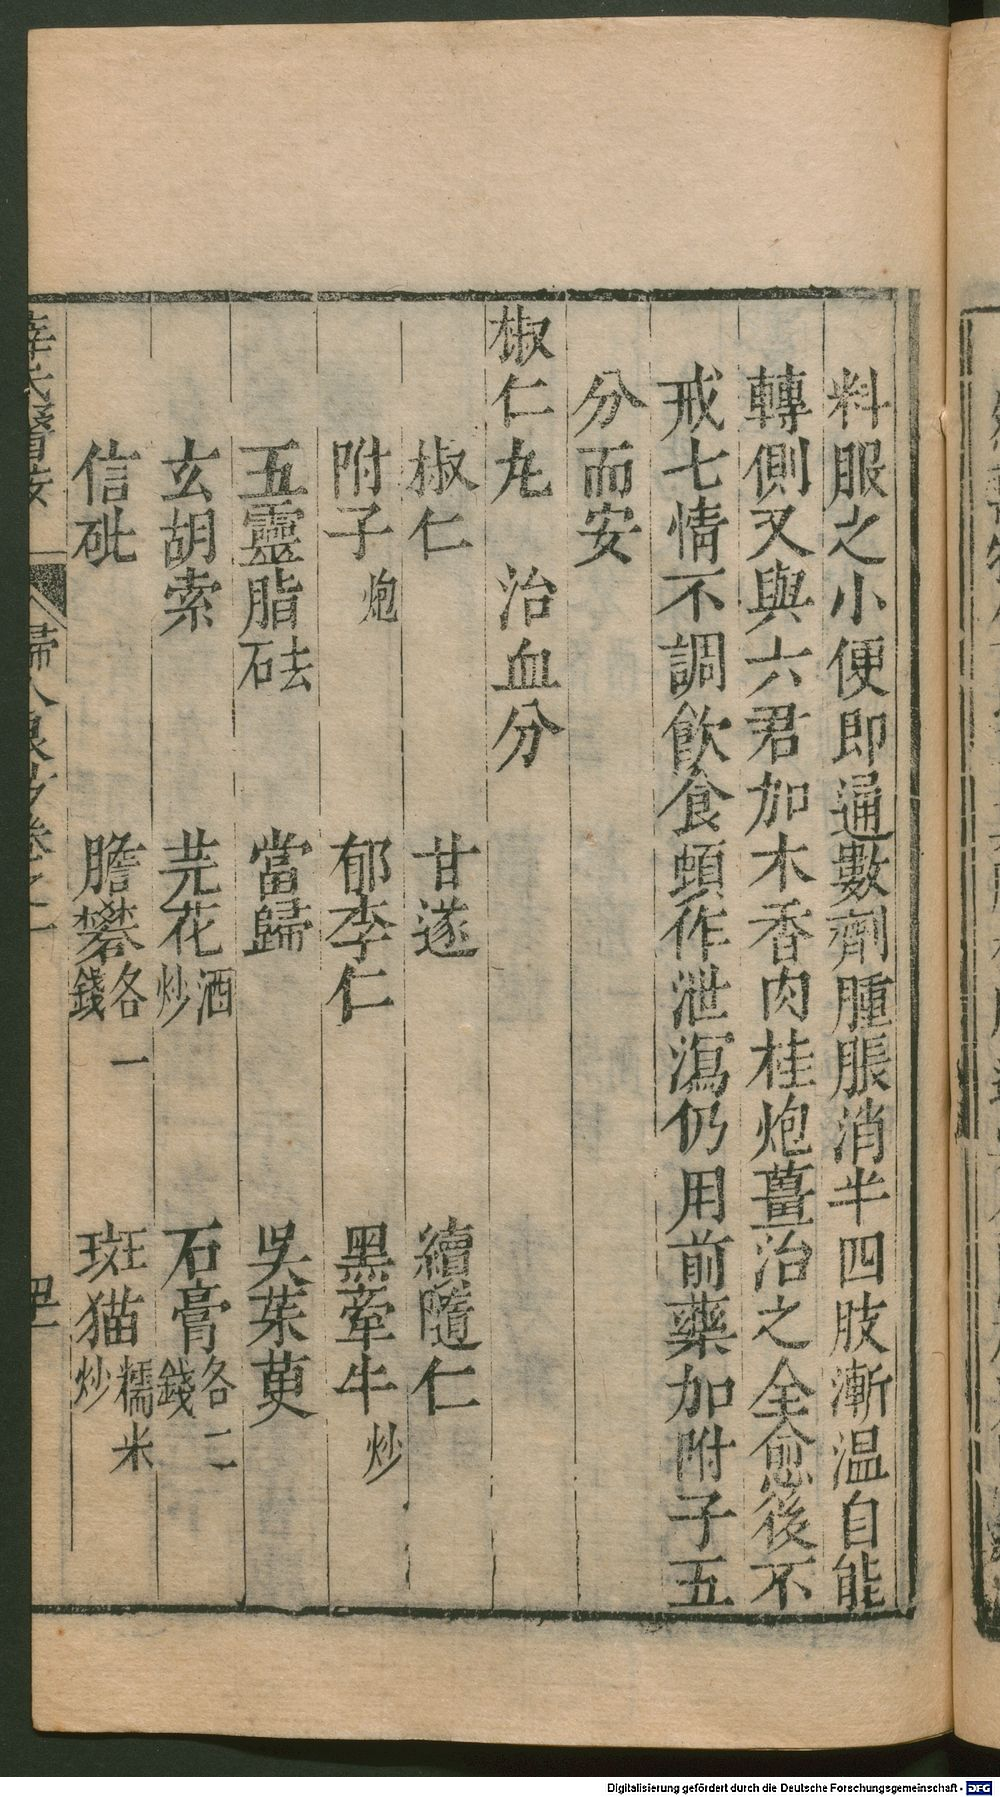 料服之小便即通數劑腫脹消半四肢漸温自能
轉側又與六君加木香肉桂炮薑治之全愈後不
戒七情不調飲食頓作泄瀉仍用前藥加附子五
分而安
椒仁丸 治血分
椒仁 甘遂 續隨仁
附子炮 郁李仁 黑牽牛炒
五靈脂去砝 當歸 吳茱萸
玄胡索 芫花酒炒 石膏各二錢
信砒 膽礬各一錢 斑猫糯米炒
薛氏醫按 婦人良方卷之二
Digitalisierung gefördert durch die Deutsche Forschungsgemeinschaft - DFG